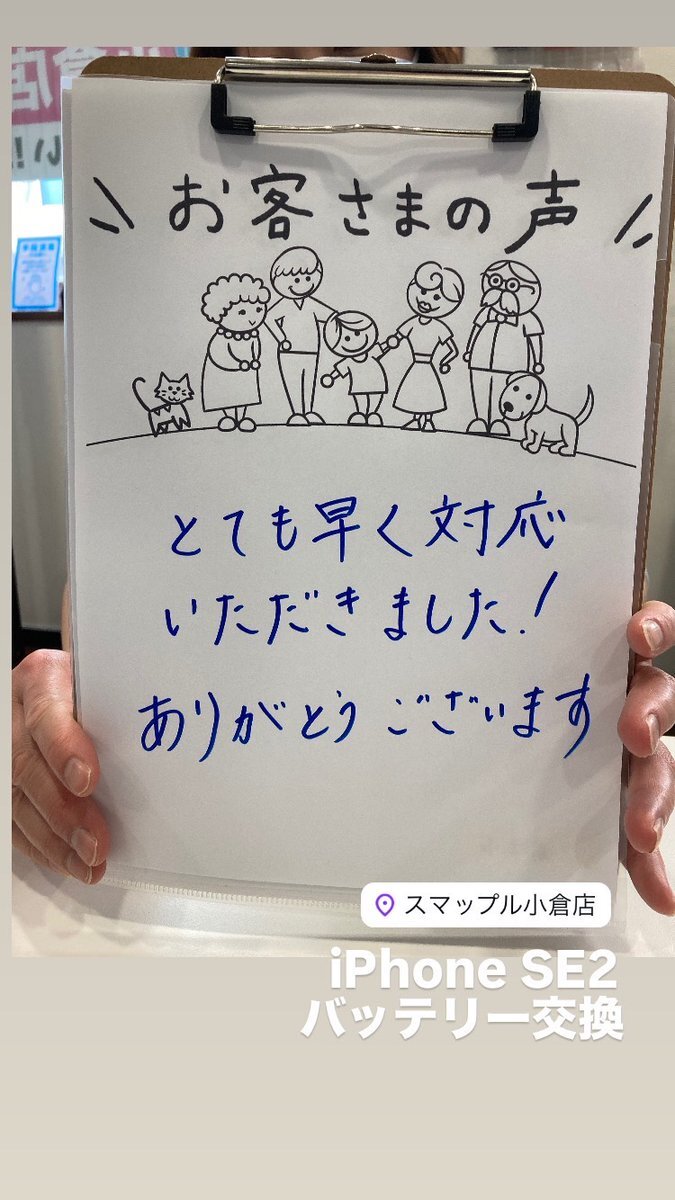 お客さまの声
とても早く対応
いただきました!
ありがとうございます
スマップル小倉店
iPhone SE2
バッテリー交換